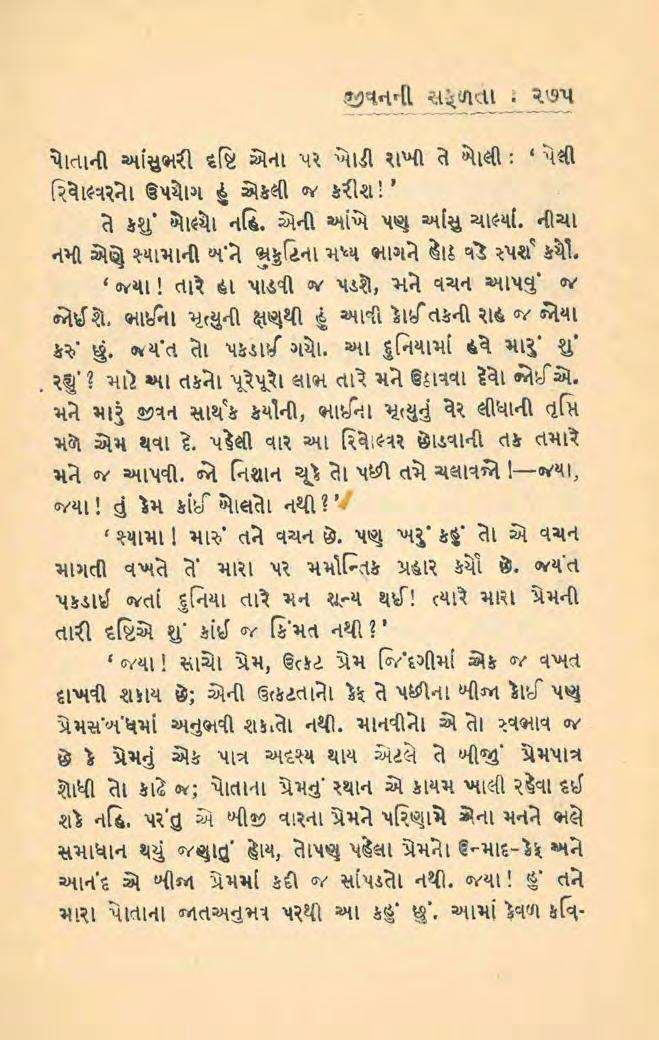 જીવનની સફળતા : ૨૭૫
પોતાની આંસુભરી દૃષ્ટિ એના પર ખોડી રાખી તે બોલી : ‘ પેલી
રિવોલ્વરનો ઉપયોગ હું એકલી જ કરીશ! ’
તે કશું બોલ્યો નહિ. એની આંખે પણ આંસુ ચાલ્યાં. નીચા
નમી એણે શ્યામાની બંને ભ્રકુટિના મધ્ય ભાગને હોઠ વડે સ્પર્શ કર્યો.
‘ જયા ! તારે હા પાડવી જ પડશે, મને વચન આપવું જ
જોઈશે. ભાઈના મૃત્યુની ક્ષણથી હું આવી કોઈ તકની રાહ જ જોયા
કરું છું. જયંત તો પકડાઈ ગયો. આ દુનિયામાં હવે મારું શું
રહ્યું ? માટે આ તકનો પૂરેપૂરો લાભ તારે મને ઉઠાવવા દેવો જોઈએ.
મને મારું જીવન સાર્થક કર્યાની, ભાઈના મૃત્યુનું વેર લીધાની તૃપ્તિ
મળે એમ થવા દે. પહેલી વાર આ રિવોલ્વર છોડવાની તક તમારે
મને જ આપવી. જો નિશાન ચૂકે તો પછી તમે ચલાવજો !—જયા,
જયા ! તું કેમ કાંઈ બોલતો નથી ? ’
‘ શ્યામા ! મારું તને વચન છે. પણ ખરું કહું તો એ વચન
માગતી વખતે તેં મારા પર મર્માન્તિક પ્રહાર કર્યો છે. જયંત
પકડાઈ જતાં દુનિયા તારે મન શૂન્ય થઈ! ત્યારે મારા પ્રેમની
તારી દૃષ્ટિએ શું કાંઈ જ કિંમત નથી ? ’
‘ જયા ! સાચો પ્રેમ, ઉત્કટ પ્રેમ જિંદગીમાં એક જ વખત
દાખવી શકાય છે; એની ઉત્કટતાનો કેફ તે પછીના બીજા કોઈ પણ
પ્રેમસંબંધમાં અનુભવી શકાતો નથી. માનવીનો એ તો સ્વભાવ જ
છે કે પ્રેમનું એક પાત્ર અદૃશ્ય થાય એટલે તે બીજું પ્રેમપાત્ર
શોધી તો કાઢે જ; પોતાના પ્રેમનું સ્થાન એ કાયમ ખાલી રહેવા દઈ
શકે નહિ. પરંતુ એ બીજી વારના પ્રેમને પરિણામે એના મનને ભલે
સમાધાન થયું જણાતું હોય, તોપણ પહેલા પ્રેમનો ઉન્માદ-કેફ અને
આનંદ એ બીજા પ્રેમમાં કદી જ સાંપડતો નથી. જયા ! હું તને
મારા પોતાના જાતઅનુભવ પરથી આ કહું છું. આમાં કેવળ કવિ-